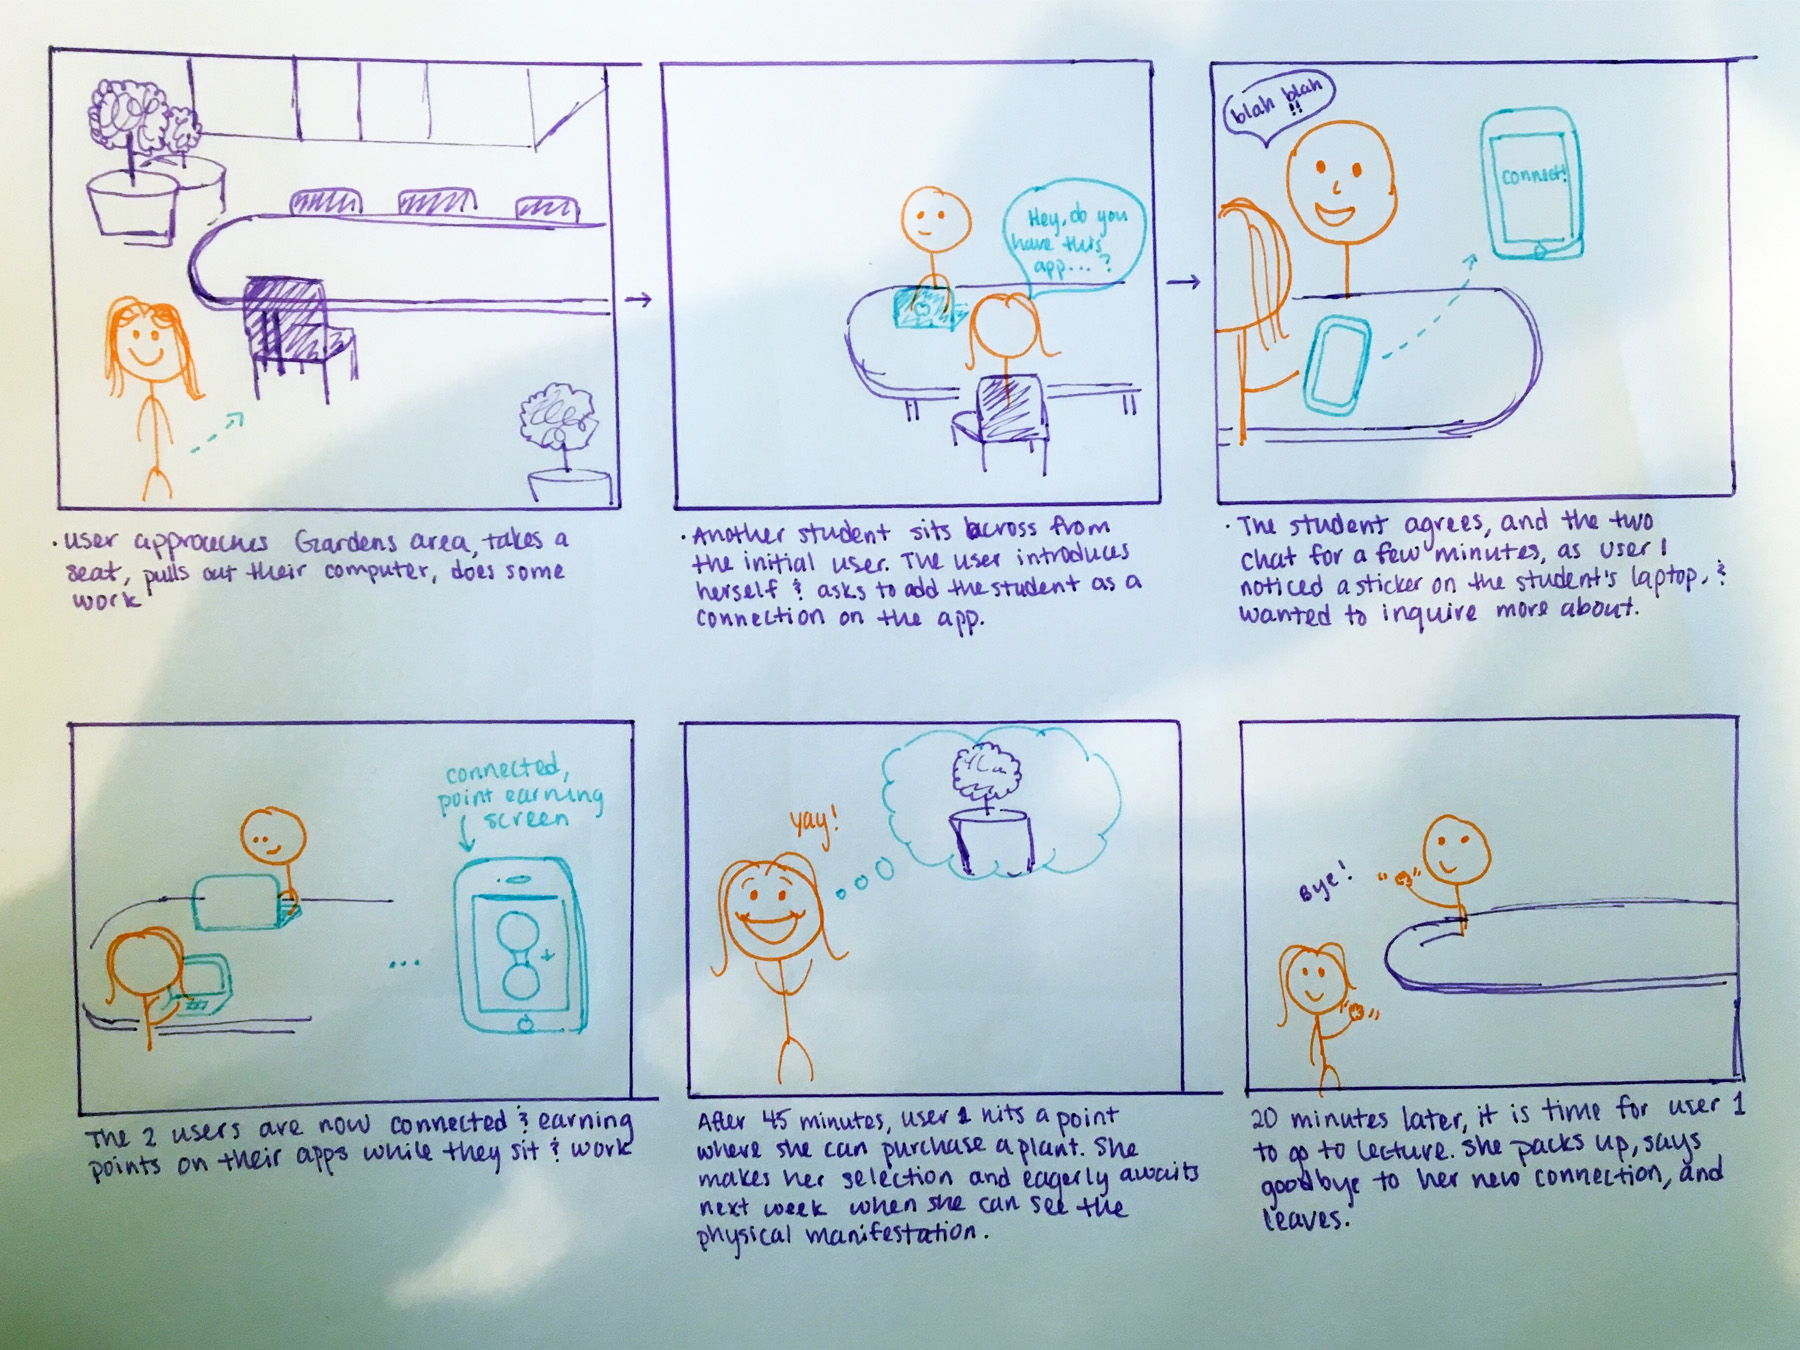 · user approaches Gardens area, takes a
seat, pulls out their computer, does some
work
Hey, do you
have this
app...?
· Another student sits across from
the initial user. The user introduces
herself & asks to add the student as a
connection on the app.
blah blah
!!
connect!
· The student agrees, and the two
chat for a few minutes, as user 1
noticed a sticker on the student's laptop, &
wanted to inquire more about.
connected,
point earning
screen
...
+
The 2 users are now connected & earning
points on their apps while they sit & work
yay!
After 45 minutes, user 1 hits a point
where she can purchase a plant. She
makes her selection and eagerly awaits
next week when she can see the
physical manifestation.
Bye!
20 minutes later, it is time for user 1
to go to lecture. She packs up, says
goodbye to her new connection, and
leaves.